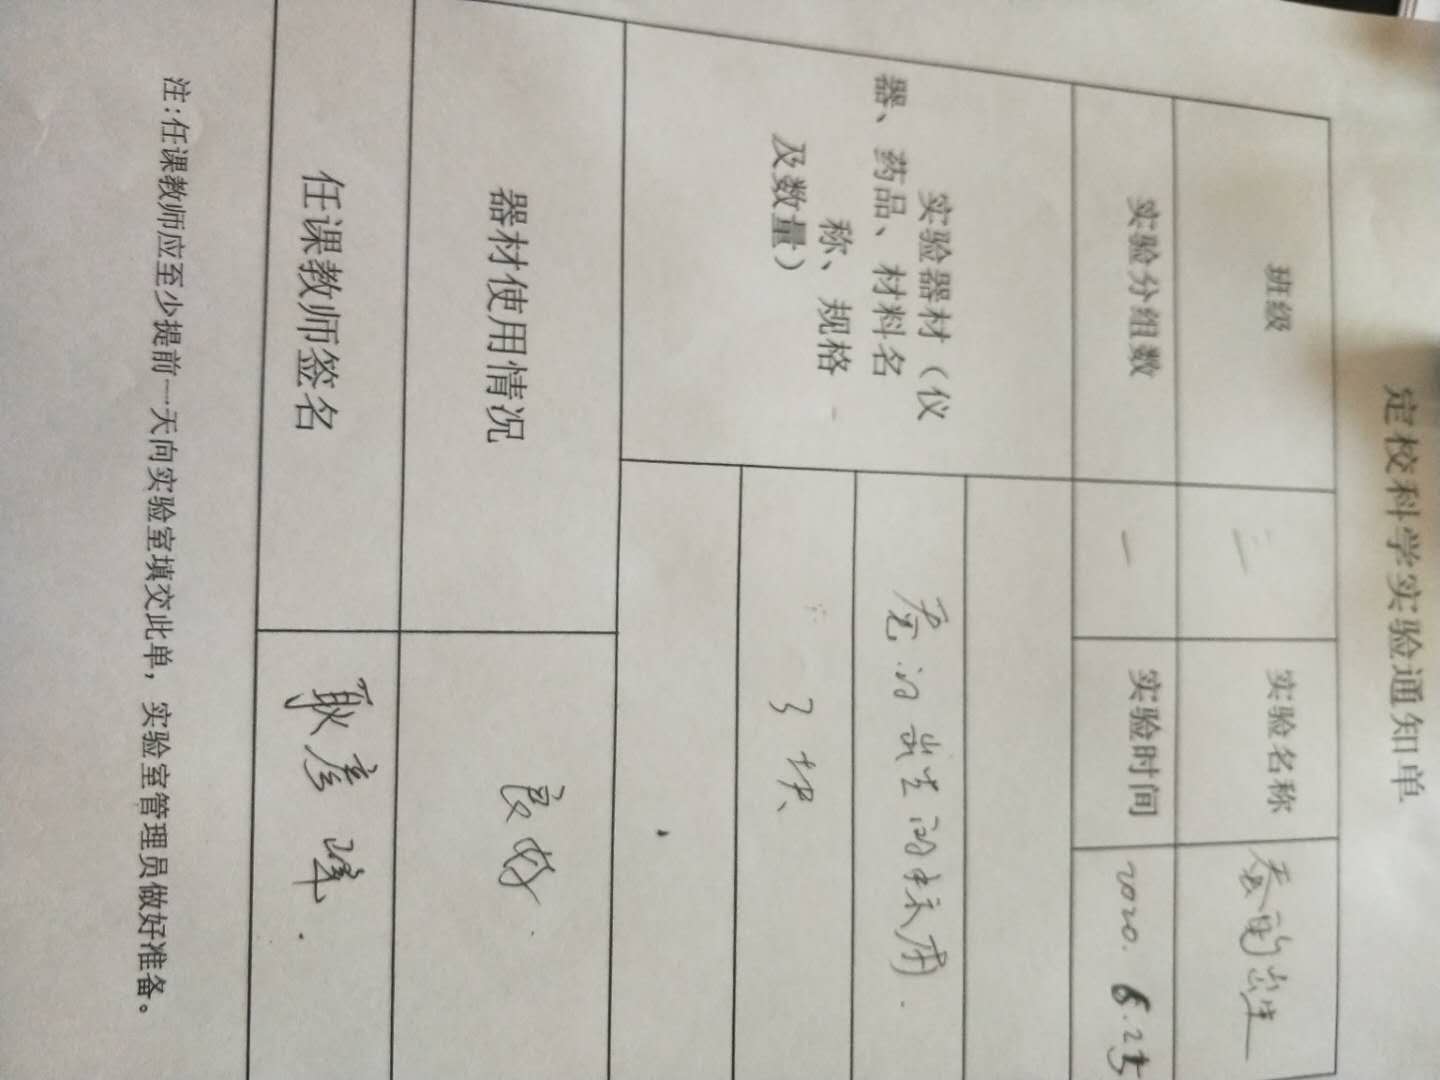 定校科学实验通知单
班级 三 实验名称 蚕的出生
实验分组数 一 实验时间 2020.6.23
实验器材（仪
器、药品、材料名
称、规格
及数量）
蚕的出生的
3块
器材使用情况 良好.
任课教师签名 耿彦
注：任课教师应至少提前一天向实验室填交此单，实验室管理员做好准备。